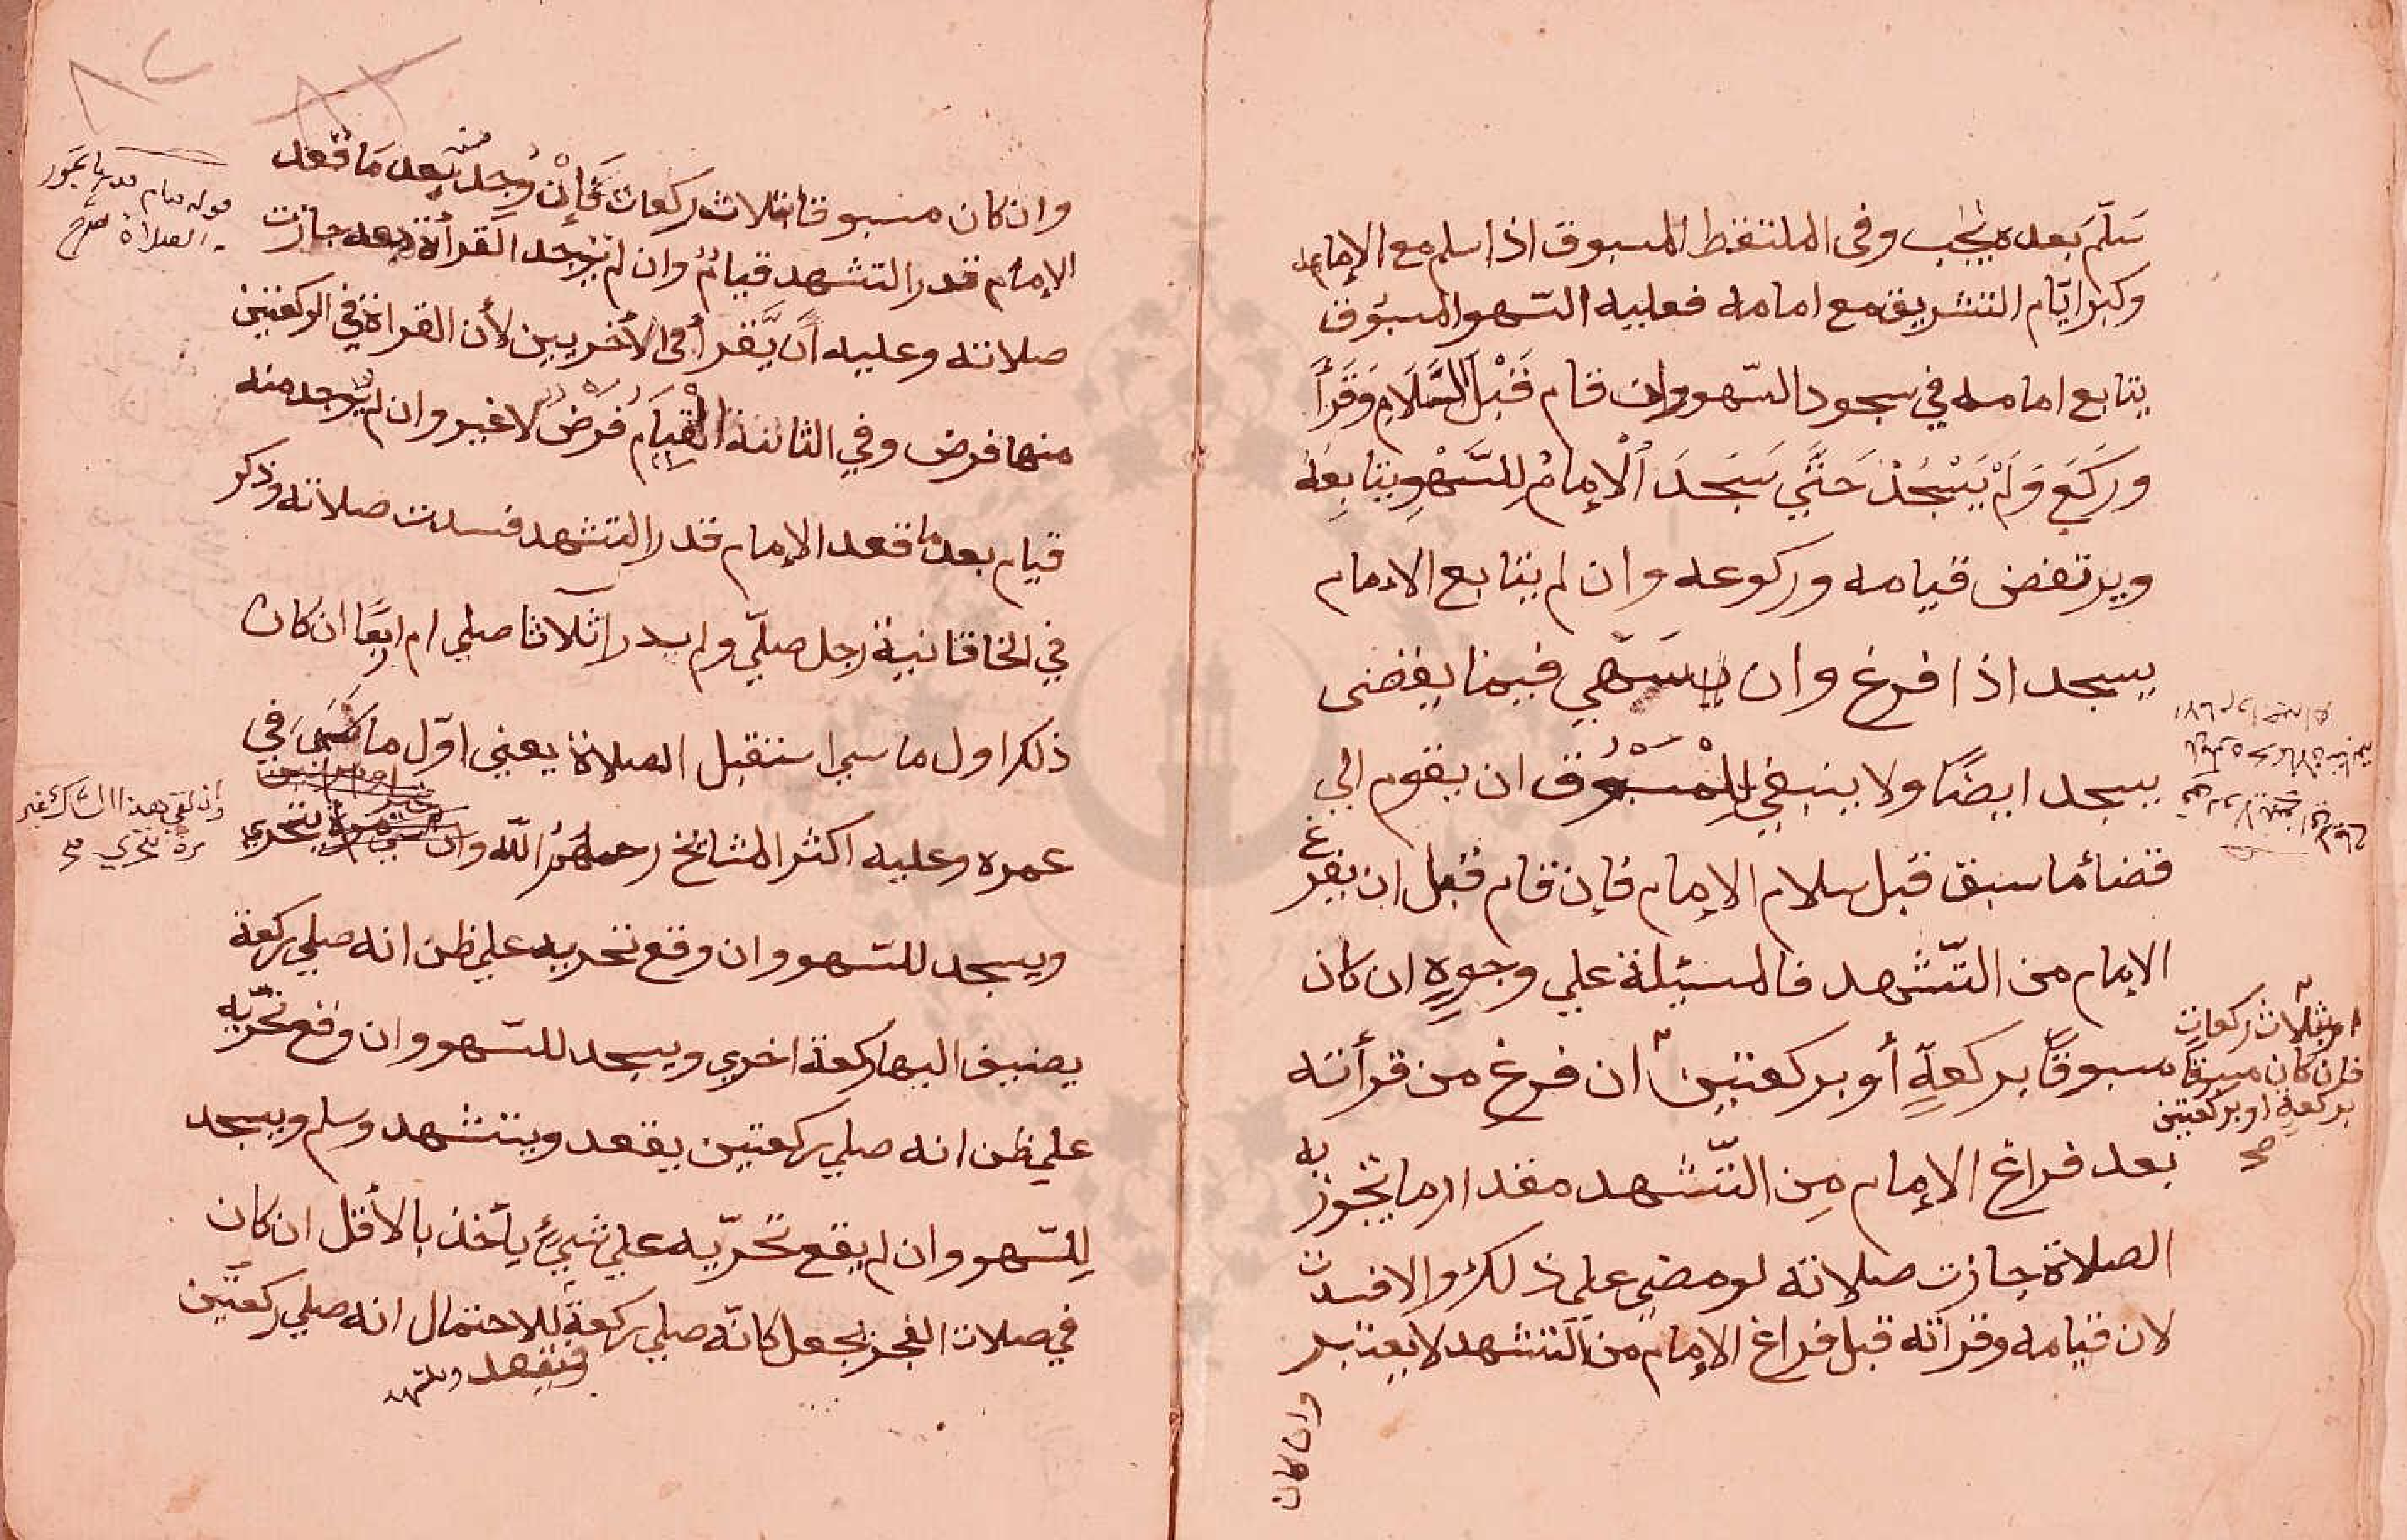 سَلَّمَ بَعده يجب وفى الملتقط المسبوق اذا سلم مع الإمام
وكبر ايّام التشريق مع امامه فعليه السّهو المسبوق
يتابع امامه في سجود السّهو وان قام قَبْلَ السَّلَامِ وَقَرَأَ
وَرَكَعَ وَلَمْ يَسْجُدْ حَتَّي سَجَدَ الْإمَامُ لِلسَّهْوِ يتابعه
ويرتفض قيامه وركوعه وان لم يتابع الامام
يسجد اذا فرغ وان سَهي فيما يقضى
يسجد ايضًا ولا ينبغي لِلْمَسْبُوق ان يقوم الي
قضاء ما سبق قبل سلام الإمام فإن قام قبل ان يفرغ
الإمام من التّشهد فالمسئلة علي وجوهٍ ان كان
مسبوقًا بركعةٍ أو بركعتين ان فرغ من قرأته
اوبثلاث ركعات
فان كان مسبوقا
بركعةٍ او بركعتين
صح
بعد فراغ الإمام مِن التّشهد مقدار ما تجوز به
الصلاة جازت صلاته لو مضي علي ذلك والا فسدت
لان قيامه وقرآته قبل فراغ الإمام من التشهد لا يعتبر
وان كان
٨٢
وان كان مسبوقا بثلاث ركعات فَإِنْ وُجد منه بَعد مَا قعد
الإمام قدر التشهد قيامٌ وان لم يوجد القرأة بعده جازت
صلاته وعليه أن يَّقرأ فى الأخريين لأن القراة في الركعتين
منها فرض وفي الثالثة القيَام فرْض لا غير وان لم يوجد منه
قيام بعد ما قعد الإمام قدر التشهد فسدت صلاته وذكر
في الخاقانية رجل صلّي ولم يدر اثلاثا صلي ام اربعًا ان كان
ذلك اول ما سهي استقبل الصلاة يعني اوّل ما سَهَي في
عمره وعليه اكثر المشائخ رحمهمُ اللّه وان
يتحري
وان لقي هذا الشك غير
مرة يتحري صح
ويسجد للسّهو وان وقع تحريه علي ظن انه صلي ركعة
يضيف اليها ركعة اخري ويسجد للسّهو وان وقع تحرّيه
علي ظن انه صلي ركعتين يقعد ويتشهد وسلم ويسجد
لِلسّهو وان لم يقع تحرّيه علي شيءٍ يأخذ بالأقل ان كان
في صلات الفجر يجعل كانّه صلي ركعةً للاحتمال انه صلي ركعتين
فيقعد ويتشهد